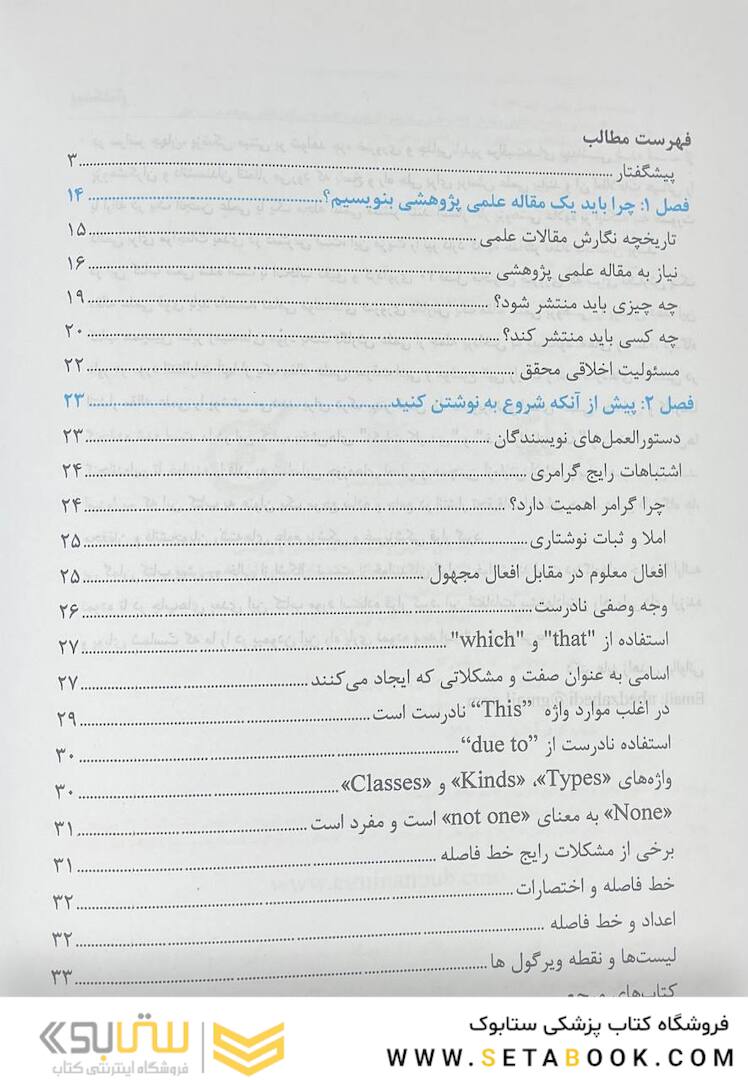 فهرست مطالب
پیشگفتار ........ ۳
فصل ۱: چرا باید یک مقاله علمی پژوهشی بنویسیم؟ ........ ۱۴
تاریخچه نگارش مقالات علمی ........ ۱۵
نیاز به مقاله علمی پژوهشی ........ ۱۶
چه چیزی باید منتشر شود؟ ........ ۱۹
چه کسی باید منتشر کند؟ ........ ۲۰
مسئولیت اخلاقی محقق ........ ۲۲
فصل ۲: پیش از آنکه شروع به نوشتن کنید ........ ۲۳
دستورالعمل‌های نویسندگان ........ ۲۳
اشتباهات رایج گرامری ........ ۲۴
چرا گرامر اهمیت دارد؟ ........ ۲۴
املا و ثبات نوشتاری ........ ۲۵
افعال معلوم در مقابل افعال مجهول ........ ۲۵
وجه وصفی نادرست ........ ۲۶
استفاده از "that" و "which" ........ ۲۷
اسامی به عنوان صفت و مشکلاتی که ایجاد می‌کنند ........ ۲۷
در اغلب موارد واژه “This” نادرست است ........ ۲۹
استفاده نادرست از “due to” ........ ۳۰
واژه‌های «Types»، «Kinds» و «Classes» ........ ۳۰
«None» به معنای «not one» است و مفرد است ........ ۳۱
برخی از مشکلات رایج خط فاصله ........ ۳۱
خط فاصله و اختصارات ........ ۳۲
اعداد و خط فاصله ........ ۳۲
لیست‌ها و نقطه ویرگول ها ........ ۳۳
فروشگاه کتاب پزشکی ستابوک
WWW.SETABOOK.COM
ستابوک
فروشگاه اینترنتی کتاب